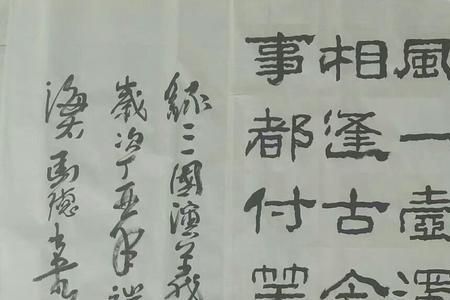 風一壺濁
相逢古今
事都付笑
錄三國演義
歲次丁亥年
海天
書